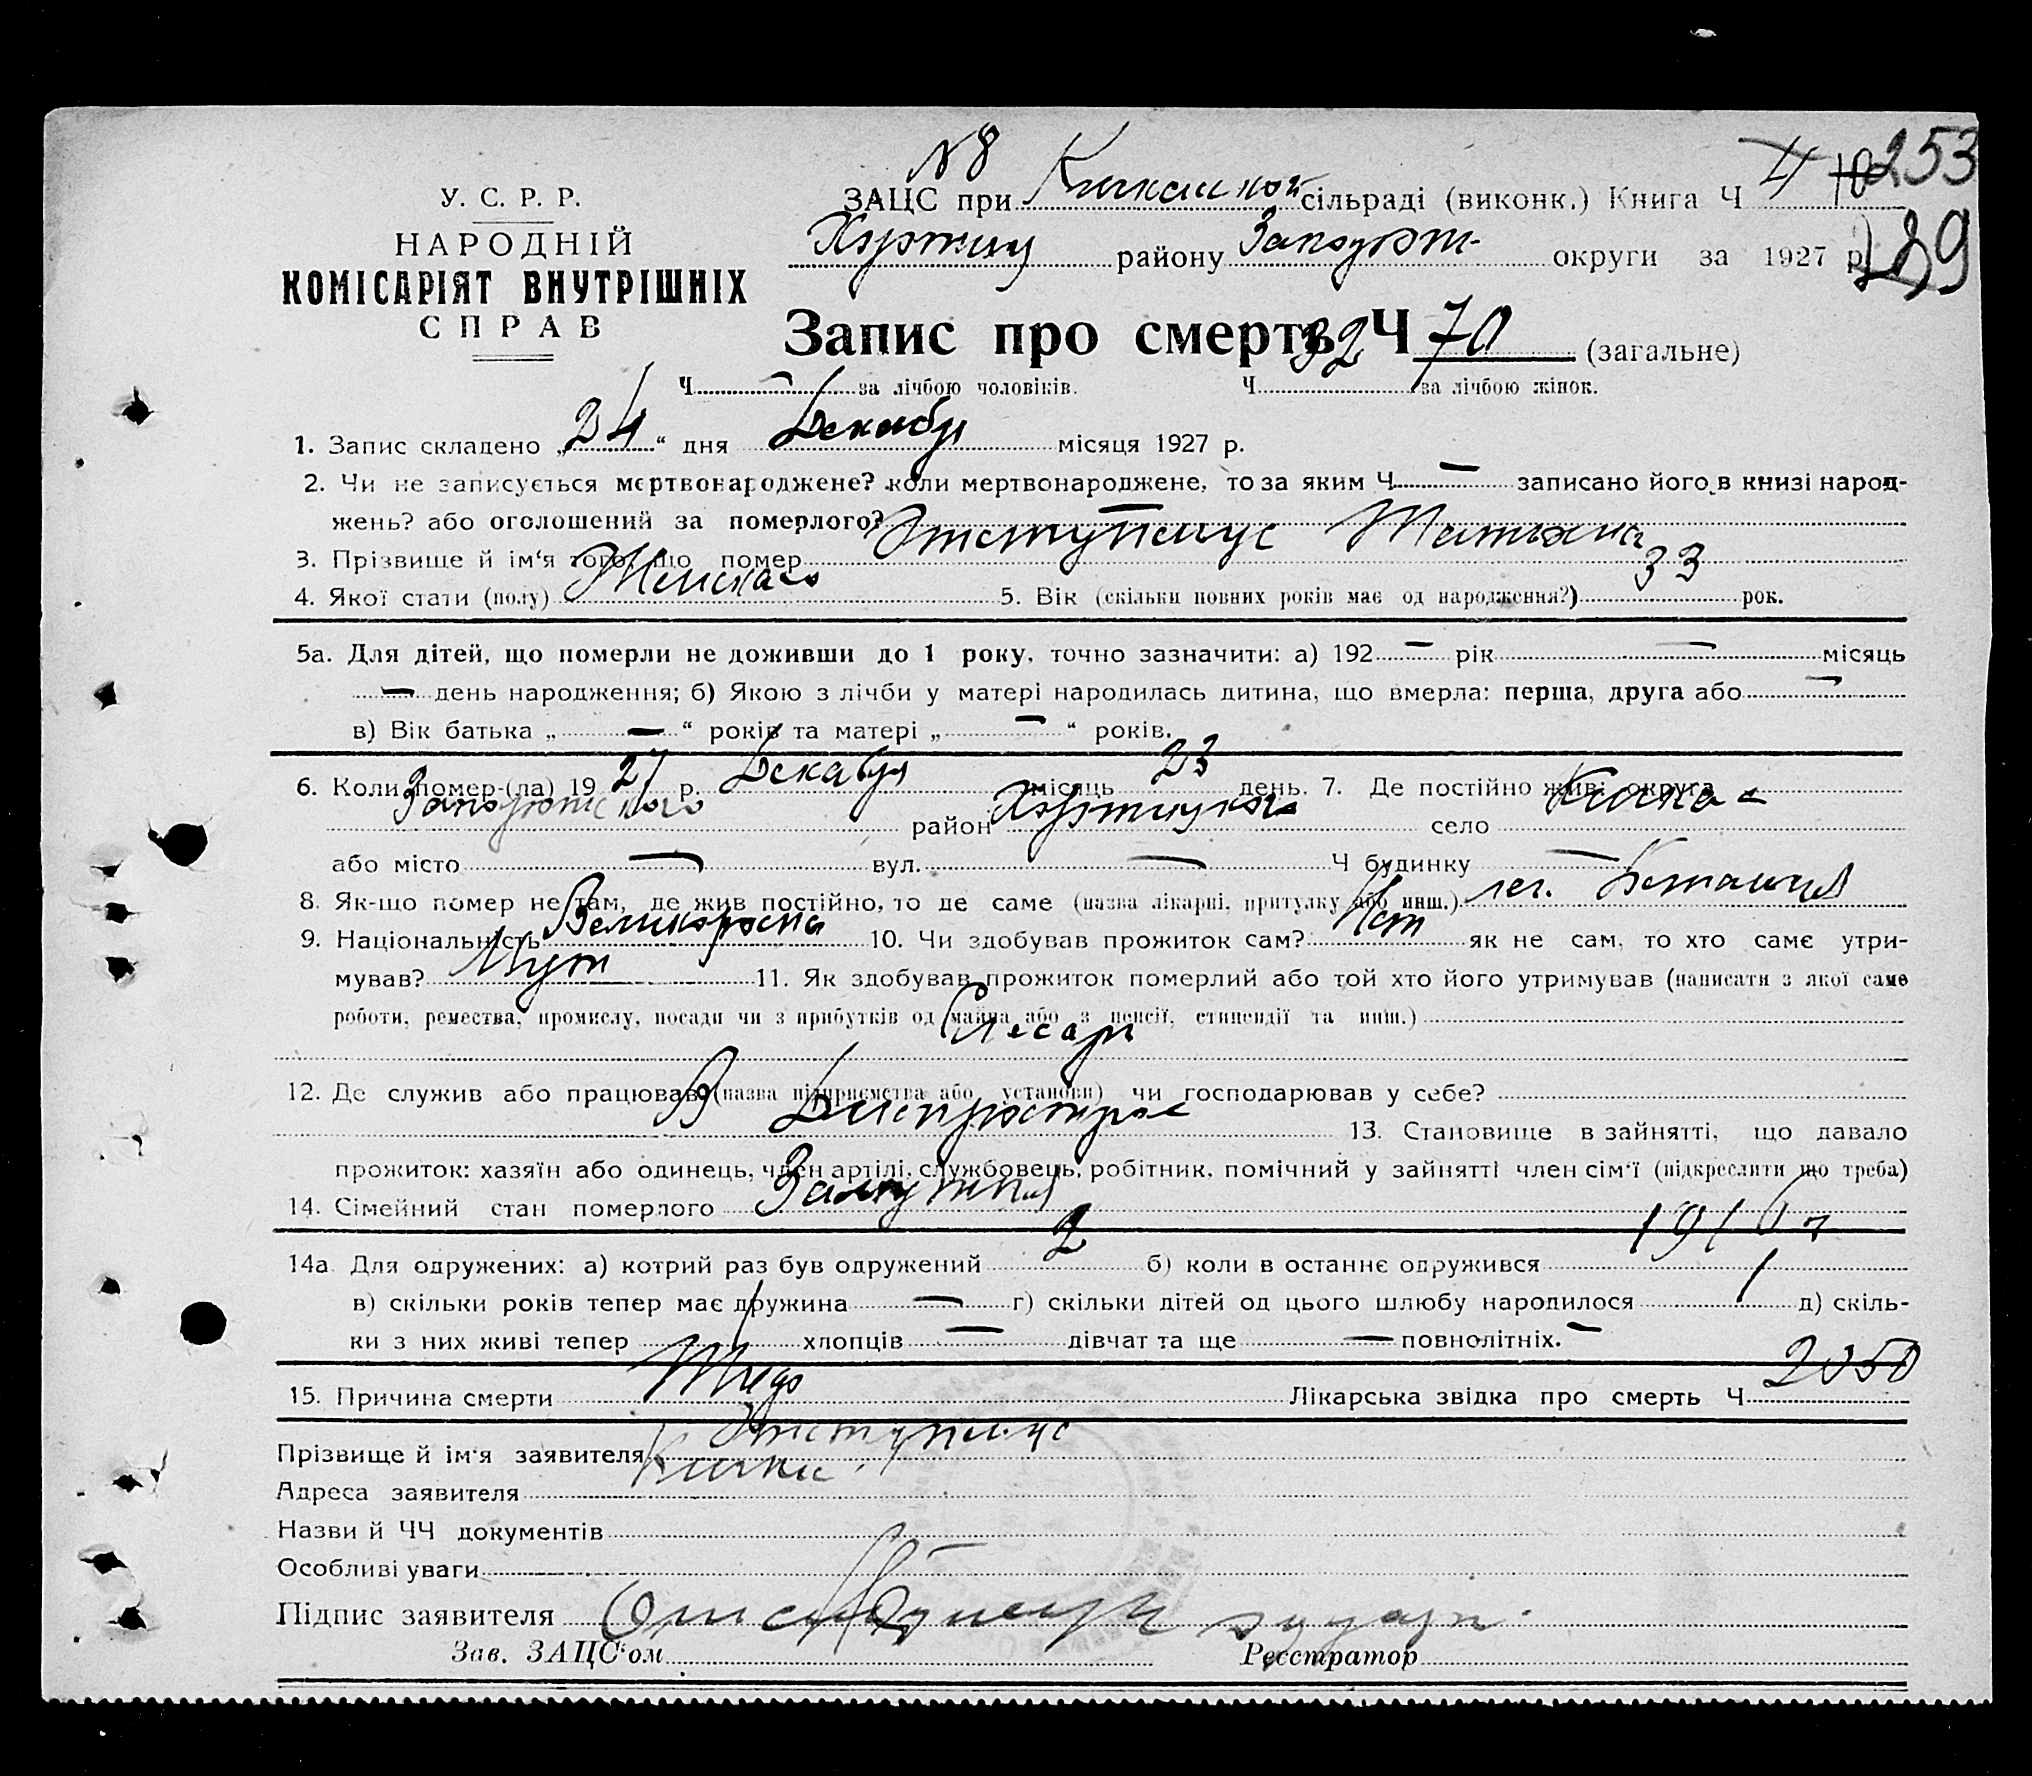 № 8
253
У. С. Р. Р.
ЗАЦС при Кичкасской сільраді (виконк.) Книга Ч 4
НАРОДНІЙ
Хортиц району Запорож- округи за 1927 р. 189
КОМІСАРІЯТ ВНУТРІШНІХ
СПРАВ
Запис про смерть Ч 70 (загальне)
Ч — за лічбою чоловіків. Ч 32 за лічбою жінок.
1. Запис складено „24“ дня Декабря місяця 1927 р.
2. Чи не записується мертвонароджене? коли мертвонароджене, то за яким Ч — записано його в книзі народ-
жень? або оголошений за померлого? —
3. Прізвище й ім'я того, що помер Татьяна
4. Якої стати (полу) Женская 5. Вік (скільки повних років має од народження?) 33 рок.
5а. Для дітей, що померли не доживши до 1 року, точно зазначити: а) 192 — рік — місяць
— день народження; б) Якою з лічби у матері народилась дитина, що вмерла: перша, друга або —
в) Вік батька „ — “ років та матері „ — “ років.
6. Коли помер-(ла) 1927 р. Декабря місяць 23 день. 7. Де постійно жив: округа
Запорожского район Хортицкого село Кичкас
або місто — вул. — Ч будинку —
8. Як-що помер не там, де жив постійно, то де саме (назва лікарні, притулку або инш.)
9. Національність Великоросска 10. Чи здобував прожиток сам? Нет як не сам, то хто саме утри-
мував? Муж 11. Як здобував прожиток померлий або той хто його утримував (написати з якої саме
роботи, ремества, промислу, посади чи з прибутків од майна або з пенсії, стипендії та инш.)
Слесарь
12. Де служив або працював (назва підприємства або установи) чи господарював у себе?
В Днепрострое 13. Становище в зайнятті, що давало
прожиток: хазяїн або одинець, член артілі, службовець, робітник, помічний у зайнятті член сім'ї (підкреслити що треба)
14. Сімейний стан померлого Замужняя
14а. Для одружених: а) котрий раз був одружений 2 б) коли в останнє одружився
в) скільки років тепер має дружина — г) скільки дітей од цього шлюбу народилося 1 д) скіль-
ки з них живі тепер 1 хлопців — дівчат та ще — повнолітніх. —
15. Причина смерти Лікарська звідка про смерть Ч 2050
Прізвище й ім'я заявителя
Кичкас
Адреса заявителя
Назви й ЧЧ документів
Особливі уваги
Підпис заявителя
Зав. ЗАЦС'ом Реєстратор